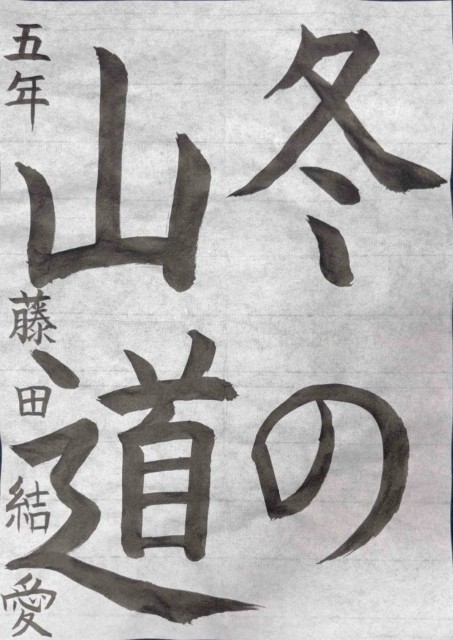 冬の
山道
五年 藤田結愛